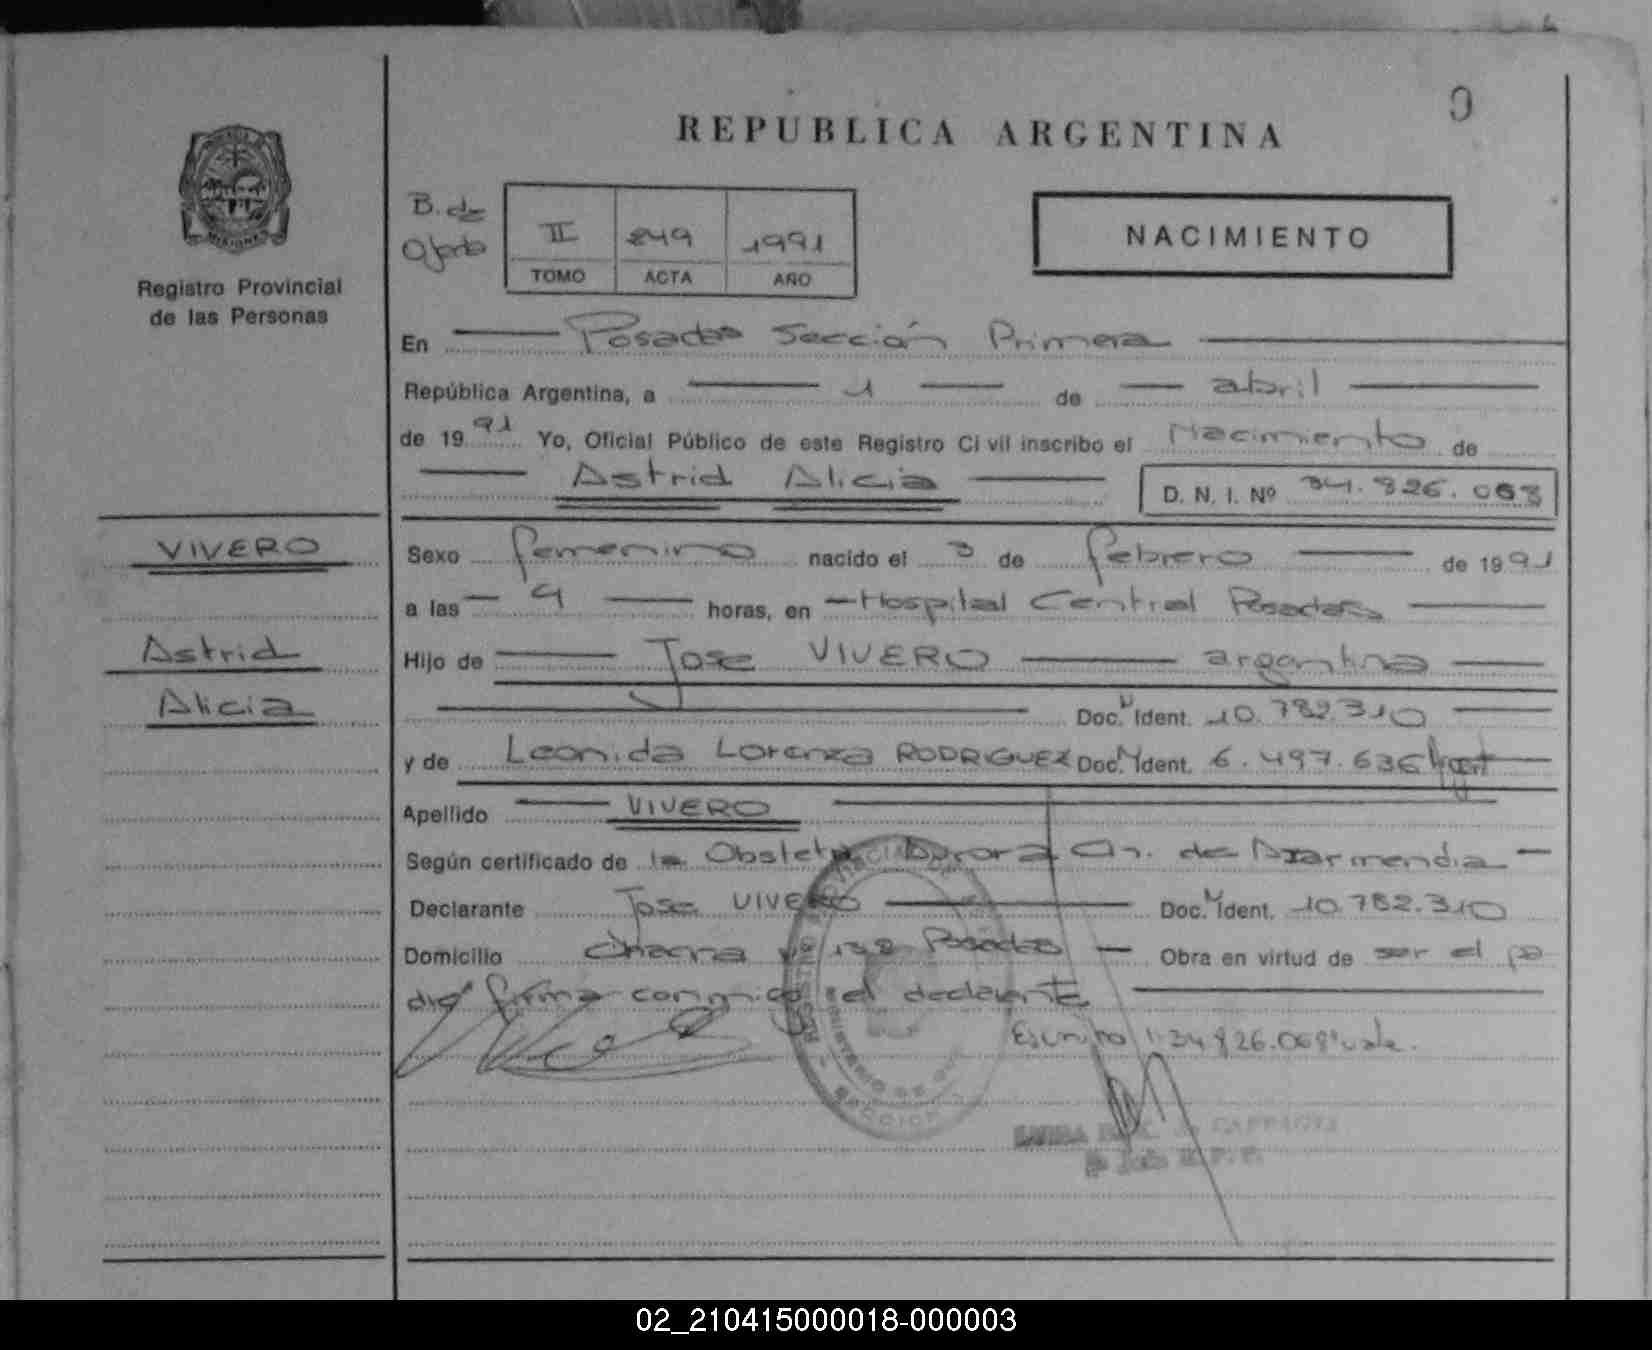 REPUBLICA ARGENTINA
B. de
II 249 1991
TOMO ACTA AÑO
NACIMIENTO
Registro Provincial
de las Personas
En Posadas Sección Primera
República Argentina, a 1 de abril
de 1991 Yo, Oficial Público de este Registro Civil inscribo el Nacimiento de
Astrid Alicia D. N. I. Nº 34.826.068
VIVERO
Astrid
Alicia
Sexo femenino nacido el 3 de febrero de 1991
a las 9 horas, en Hospital Central Posadas
Hijo de Jose VIVERO argentina
Doc. N Ident. 10.782.310
y de Leonida Lorenza RODRIGUEZ Doc. N Ident. 6.497.636 Argt
Apellido VIVERO
Según certificado de la Obstetra Aurora de
Declarante Jose VIVERO Doc. N Ident. 10.782.310
Domicilio Chacra Nº 132 Posadas Obra en virtud de ser el pa
dre firma conmigo el declarante
Escrito "34.826.068" vale.
02_210415000018-000003